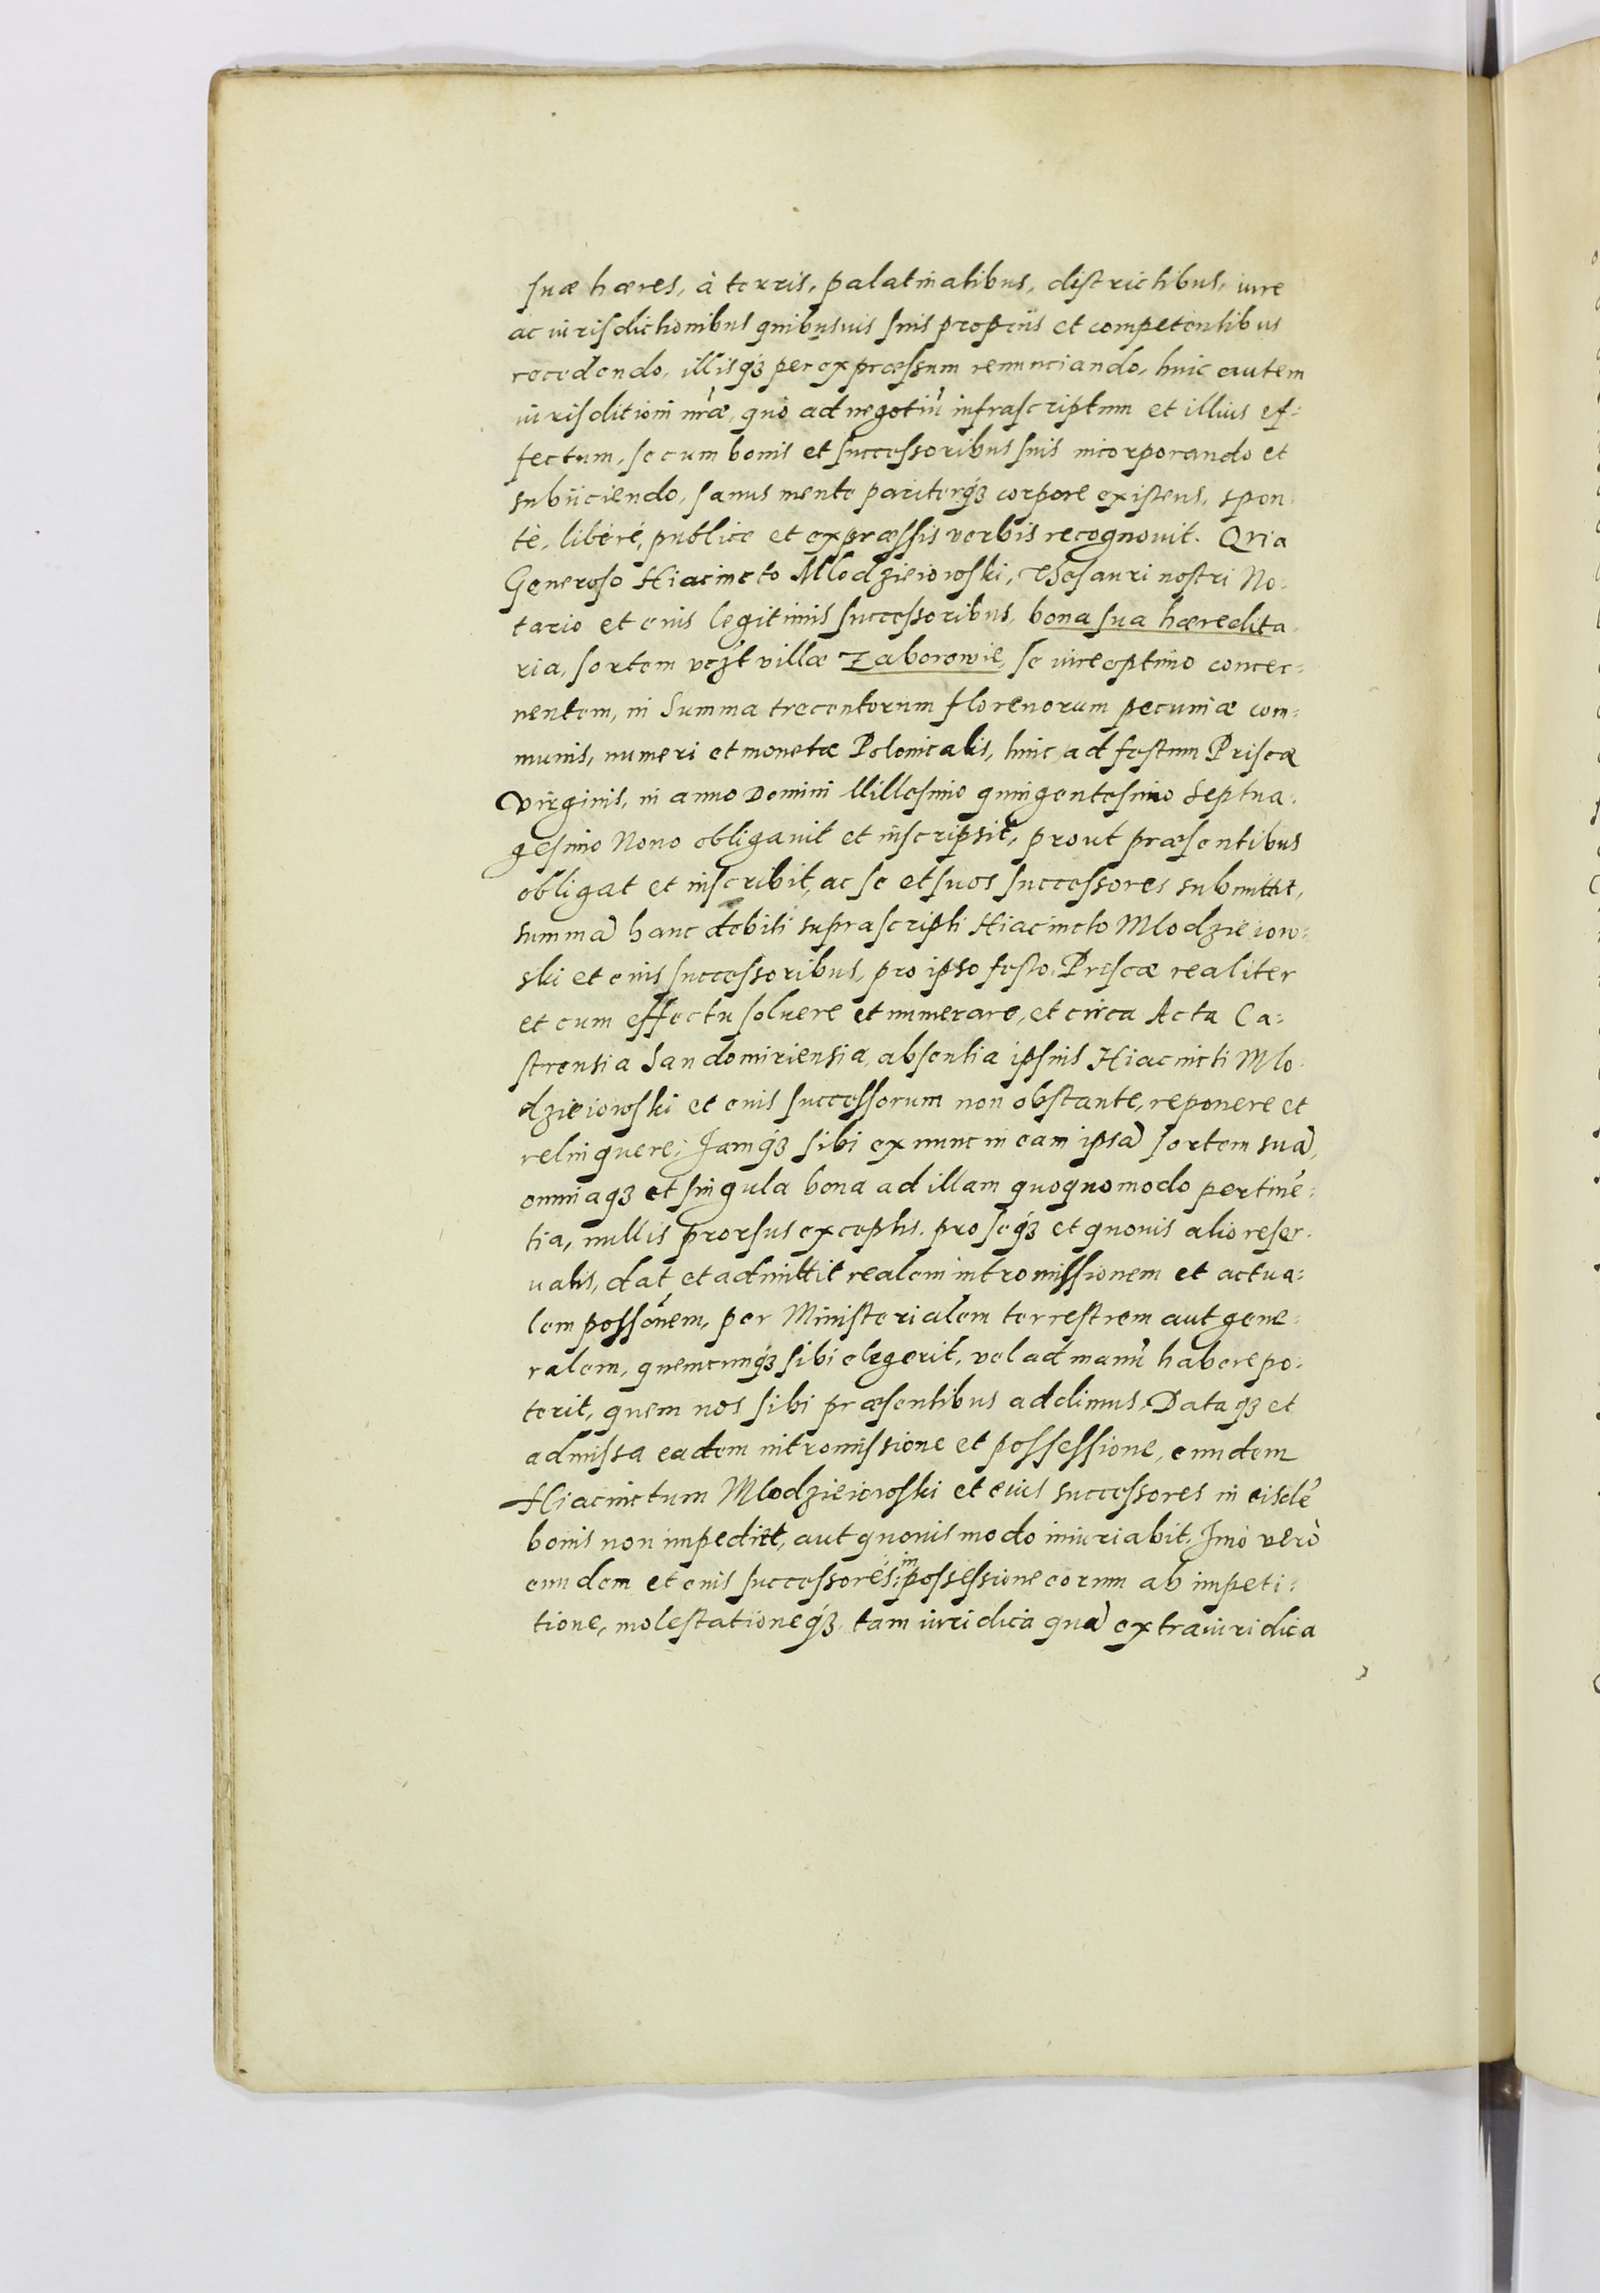 suæ hæres, à terris, palatinatibus, districtibus, iure
ac iurisdictionibus quibusuis suis proprijs et competentibus
recedendo, illisq́ʒ per expræssum renunciando, huic autem
iurisditioni nr̃æ, quò ad negotiũ infrascriptum et illius ef:
fectum, se cum bonis et successoribus suis incorporando et
subijciendo, sanus mente pariterq́ʒ corpore existens, spon:
tè, liberè, publice et expræssis verbis recognouit. Quia
Generoso Hiacincto Mlodzieiowski, Thesauri nostri No:
tario et eius legitimis successoribus, bona sua hæredita:
ria, sortem vczt villæ Zaborowie, se iure optimo concer:
nentem, in Summa trecentorum florenorum pecuniæ com:
munis, numeri et monetæ Polonicalis, hinc ad festum Priscæ
Virginis, in anno Domini Millesimo quingentesimo Septua:
gesimo Nono obligauit et inscripsit, prout præsentibus
obligat et inscribit, ac se et suos successores submittit,
summã hanc debiti suprascripti Hiacincto Mlodzieiow:
ski et eius successoribus, pro ipso festo Priscæ realiter
et cum effectu soluere et numerare, et circa Acta Ca:
strensia Sandomiriensia, absentia ipsius Hiacincti Mlo:
dzieiowski et eius successorum non obstante, reponere et
relinquere; Jamq́ʒ sibi ex nunc in eam ipsã sortem suã,
omniaqʒ et singula bona ad illam quoquomodo pertinẽ:
tia, nullis prorsus exceptis. pro seq́ʒ et quouis alio reser:
uatis, dat et admittit realem intromissionem et actua:
lem possõnem, per Ministerialem terrestrem aut gene:
ralem, quemcunq́ʒ sibi elegerit, vel ad manũ habere po:
terit, quem nos sibi præsentibus addimus. Dataqʒ et
admissa eadem intromissione et possessione, eundem
Hiacinctum Mlodzieiowski et eius successores in eisdẽ
bonis non impediet, aut quouis modo iniuriabit. Jmò verò
eundem et eius successores, in possessione eorum ab impeti:
tione, molestationeq́ʒ tam iuridica quã extraiuridica